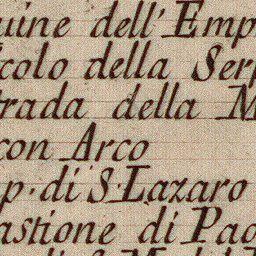 uine dell'Emp
colo della Ser
trada della M
con Arco
p. di S. Lazaro
astione di Pao